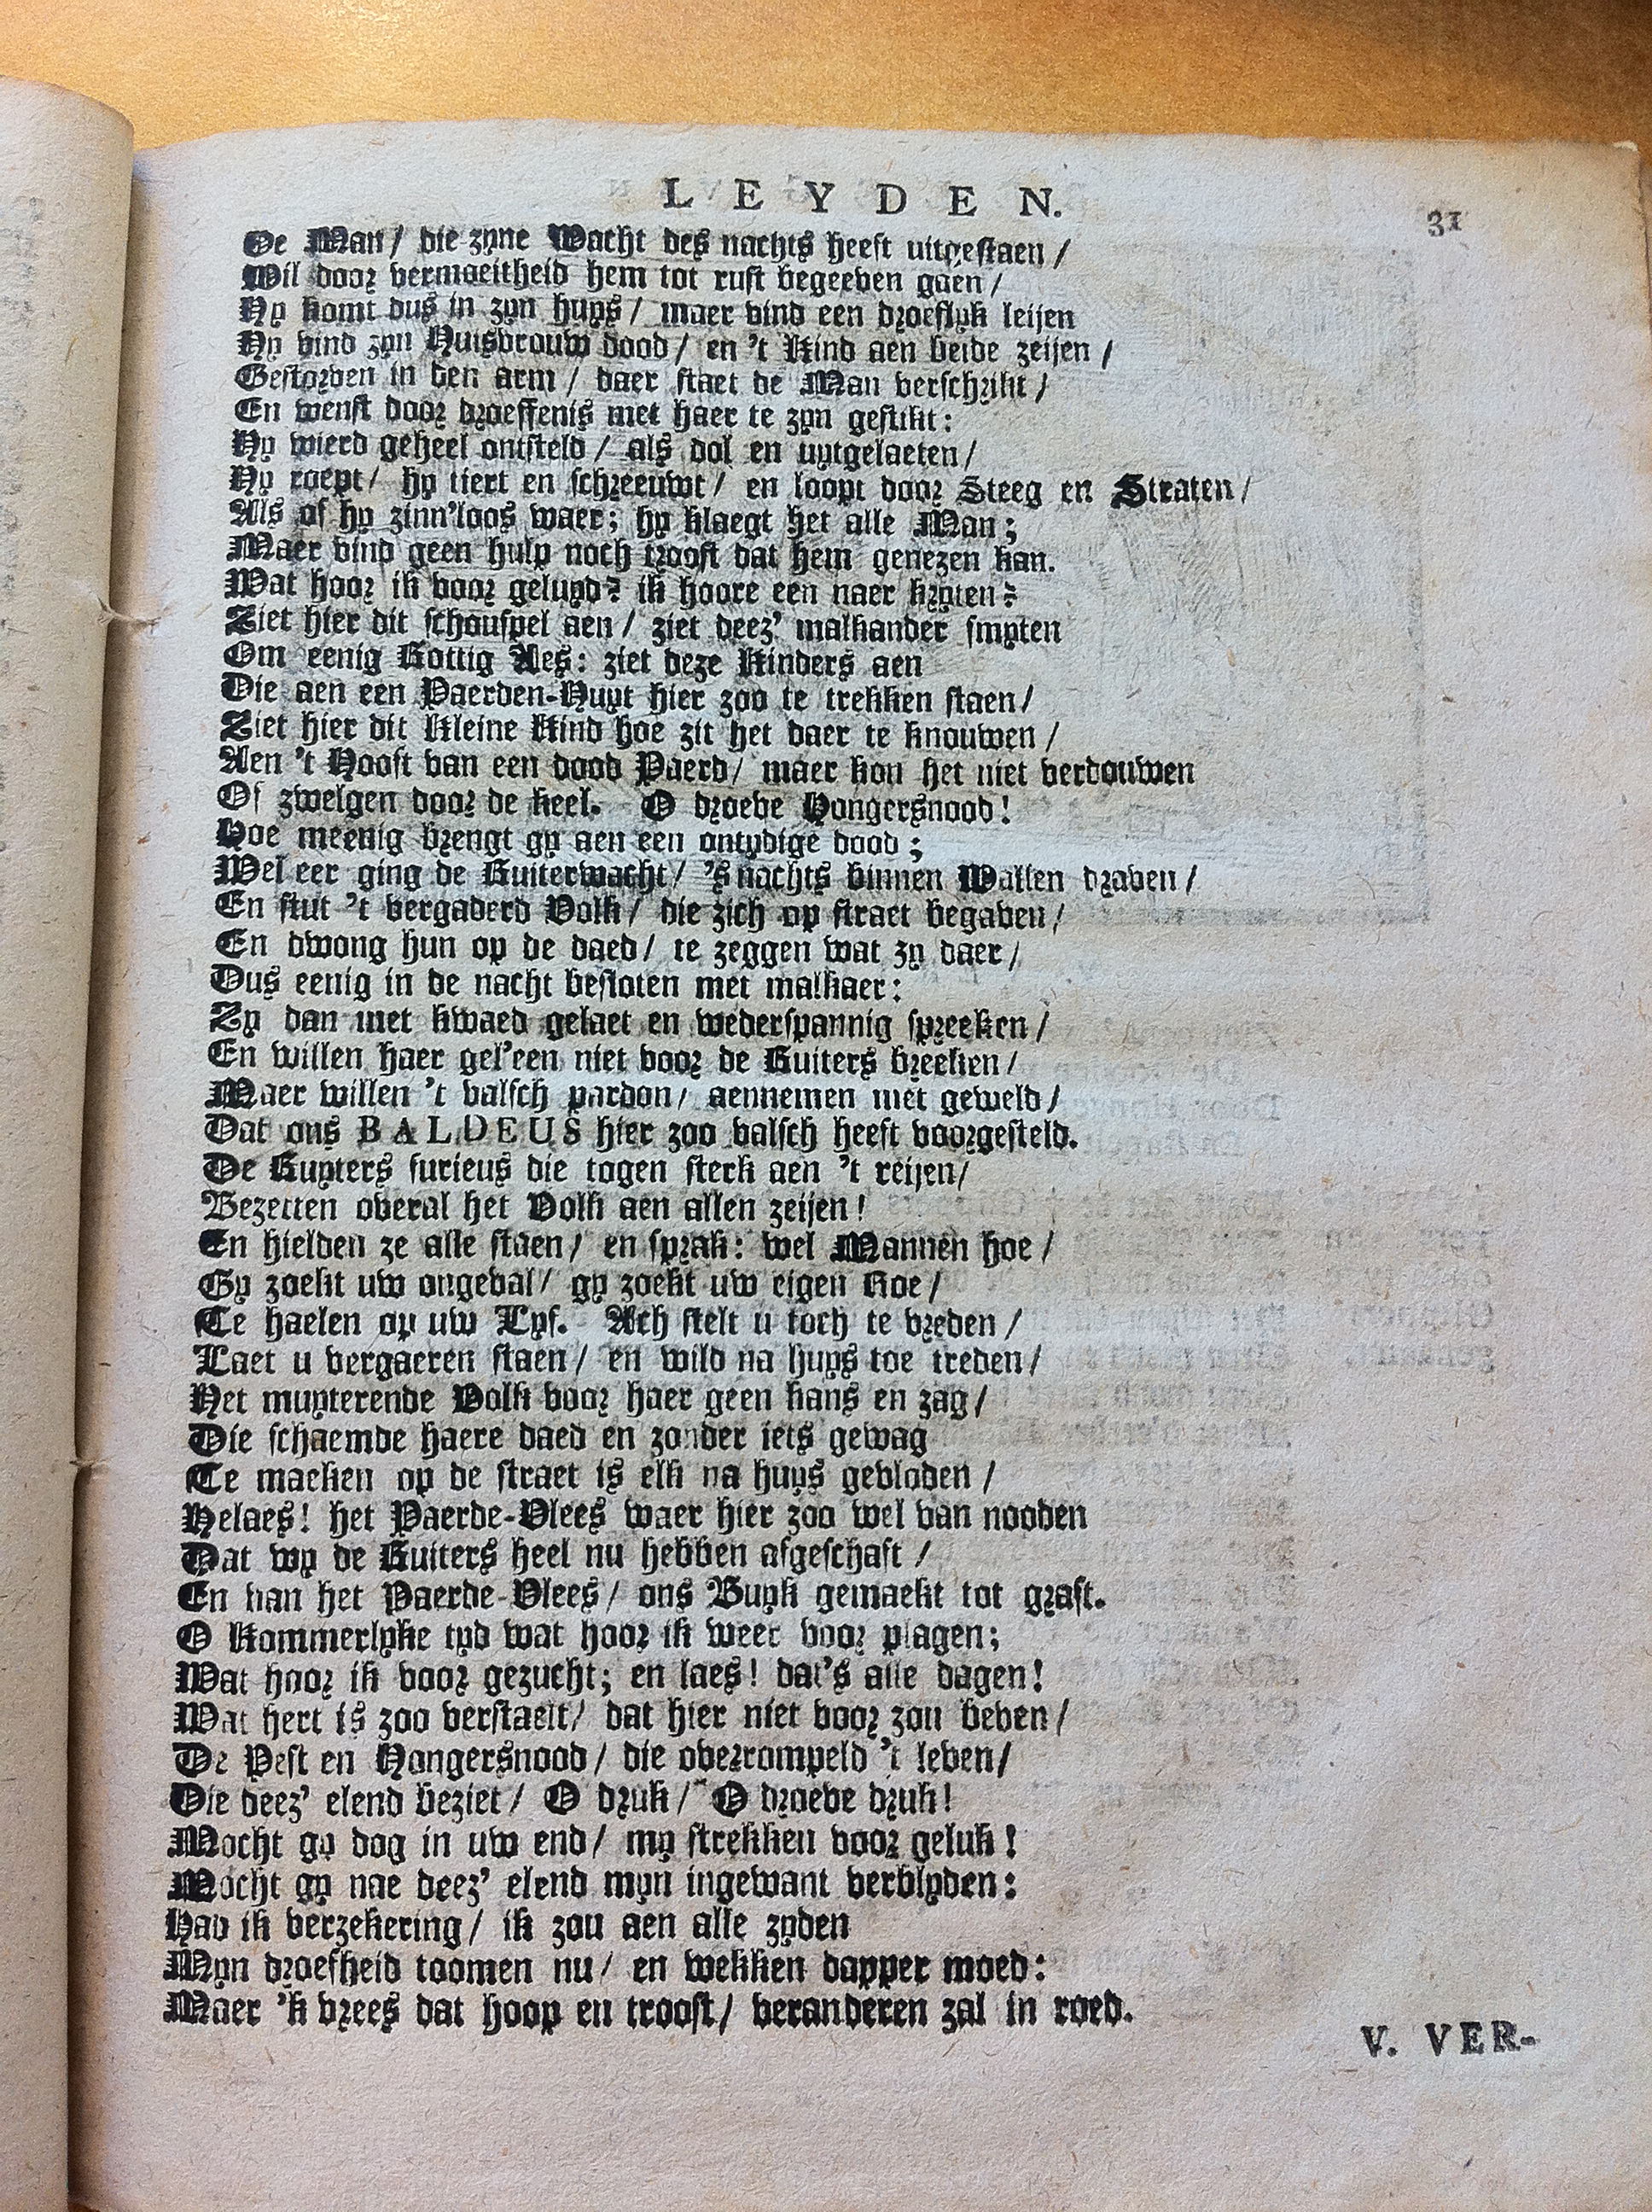 LEYDEN.
31
De Man / die zyne Wacht des nachts heeft uitgestaen /
Wil door vermoeitheid hem tot rust begeeven gaen /
Hy komt dus in zyn huys / maer vind een droeflyk leijen
Hy vind zyn Huisvrouw dood / en 't Kind aen beide zeijen /
Gestorven in den arm / daer staet de Man verschrikt /
En wenst door droeffenis met haer te zyn gestikt:
Hy wierd geheel ontsteld / als dol en uytgelaeten /
Hy roept / hy tiert en schreeuwt / en loopt door Steeg en Straten /
Als of hy zinn'loos waer; hy klaegt het alle Man;
Maer vind geen hulp noch troost dat hem genezen kan.
Wat hoor ik voor geluyd? ik hoore een naer kryten?
Ziet hier dit schouspel aen / ziet deez' malkander smyten
Om eenig Rottig Aes: ziet deze Kinders aen
Die aen een Paerden-Huyt hier zoo te trekken staen /
Ziet hier dit Kleine Kind hoe zit het daer te knouwen /
Aen 't Hooft van een dood Paerd / maer kon het niet verdouwen
Of zwelgen door de keel. O droeve Hongersnood!
Hoe meenig brengt gy aen een ontydige dood;
Wel eer ging de Ruiterwacht / 's nachts binnen Wallen draven /
En stut 't vergaderd Volk / die zich op straet begaven /
En dwong hun op de daed / te zeggen wat zy daer /
Dus eenig in de nacht besloten met malkaer:
Zy dan met kwaed gelaet en wederspannig spreeken /
En willen haer gel'een niet voor de Ruiters breeken /
Maer willen 't valsch pardon / aennemen met geweld /
Dat ons BALDEUS hier zoo valsch heeft voorgesteld.
De Ruyters furieus die togen sterk aen 't reijen /
Bezetten overal het Volk aen allen zeijen!
En hielden ze alle staen / en sprak: wel Mannen hoe /
Gy zoekt uw ongeval / gy zoekt uw eigen Roe /
Te haelen op uw Lyf. Ach stelt u toch te vreden /
Laet u vergaeren staen / en wild na huys toe treden /
Het muyterende Volk voor haer geen kans en zag /
Die schaemde haere daed en zonder iets gewag
Te maeken op de straet is elk na huys gevloden /
Helaes! het Paerde-Vlees waer hier zoo wel van nooden
Dat wy de Ruiters heel nu hebben afgeschaft /
En van het Paerde-Vlees / ons Buyk gemaekt tot graft.
O Kommerlyke tyd wat hoor ik weer voor plagen;
Wat hoor ik voor gezucht; en laes! dat's alle dagen!
Wat hert is zoo verstaelt / dat hier niet voor zou beven /
De Pest en Hongersnood / die overrompeld 't leven /
Die deez' elend beziet / O druk / O droeve druk!
Mocht gy dog in uw end / my strekken voor geluk!
Mocht gy nae deez' elend myn ingewant verblyden:
Had ik verzekering / ik zou aen alle zyden
Myn droefheid toomen nu / en wekken dapper moed:
Maer 'k vrees dat hoop en troost / veranderen zal in roed.
V. VER-